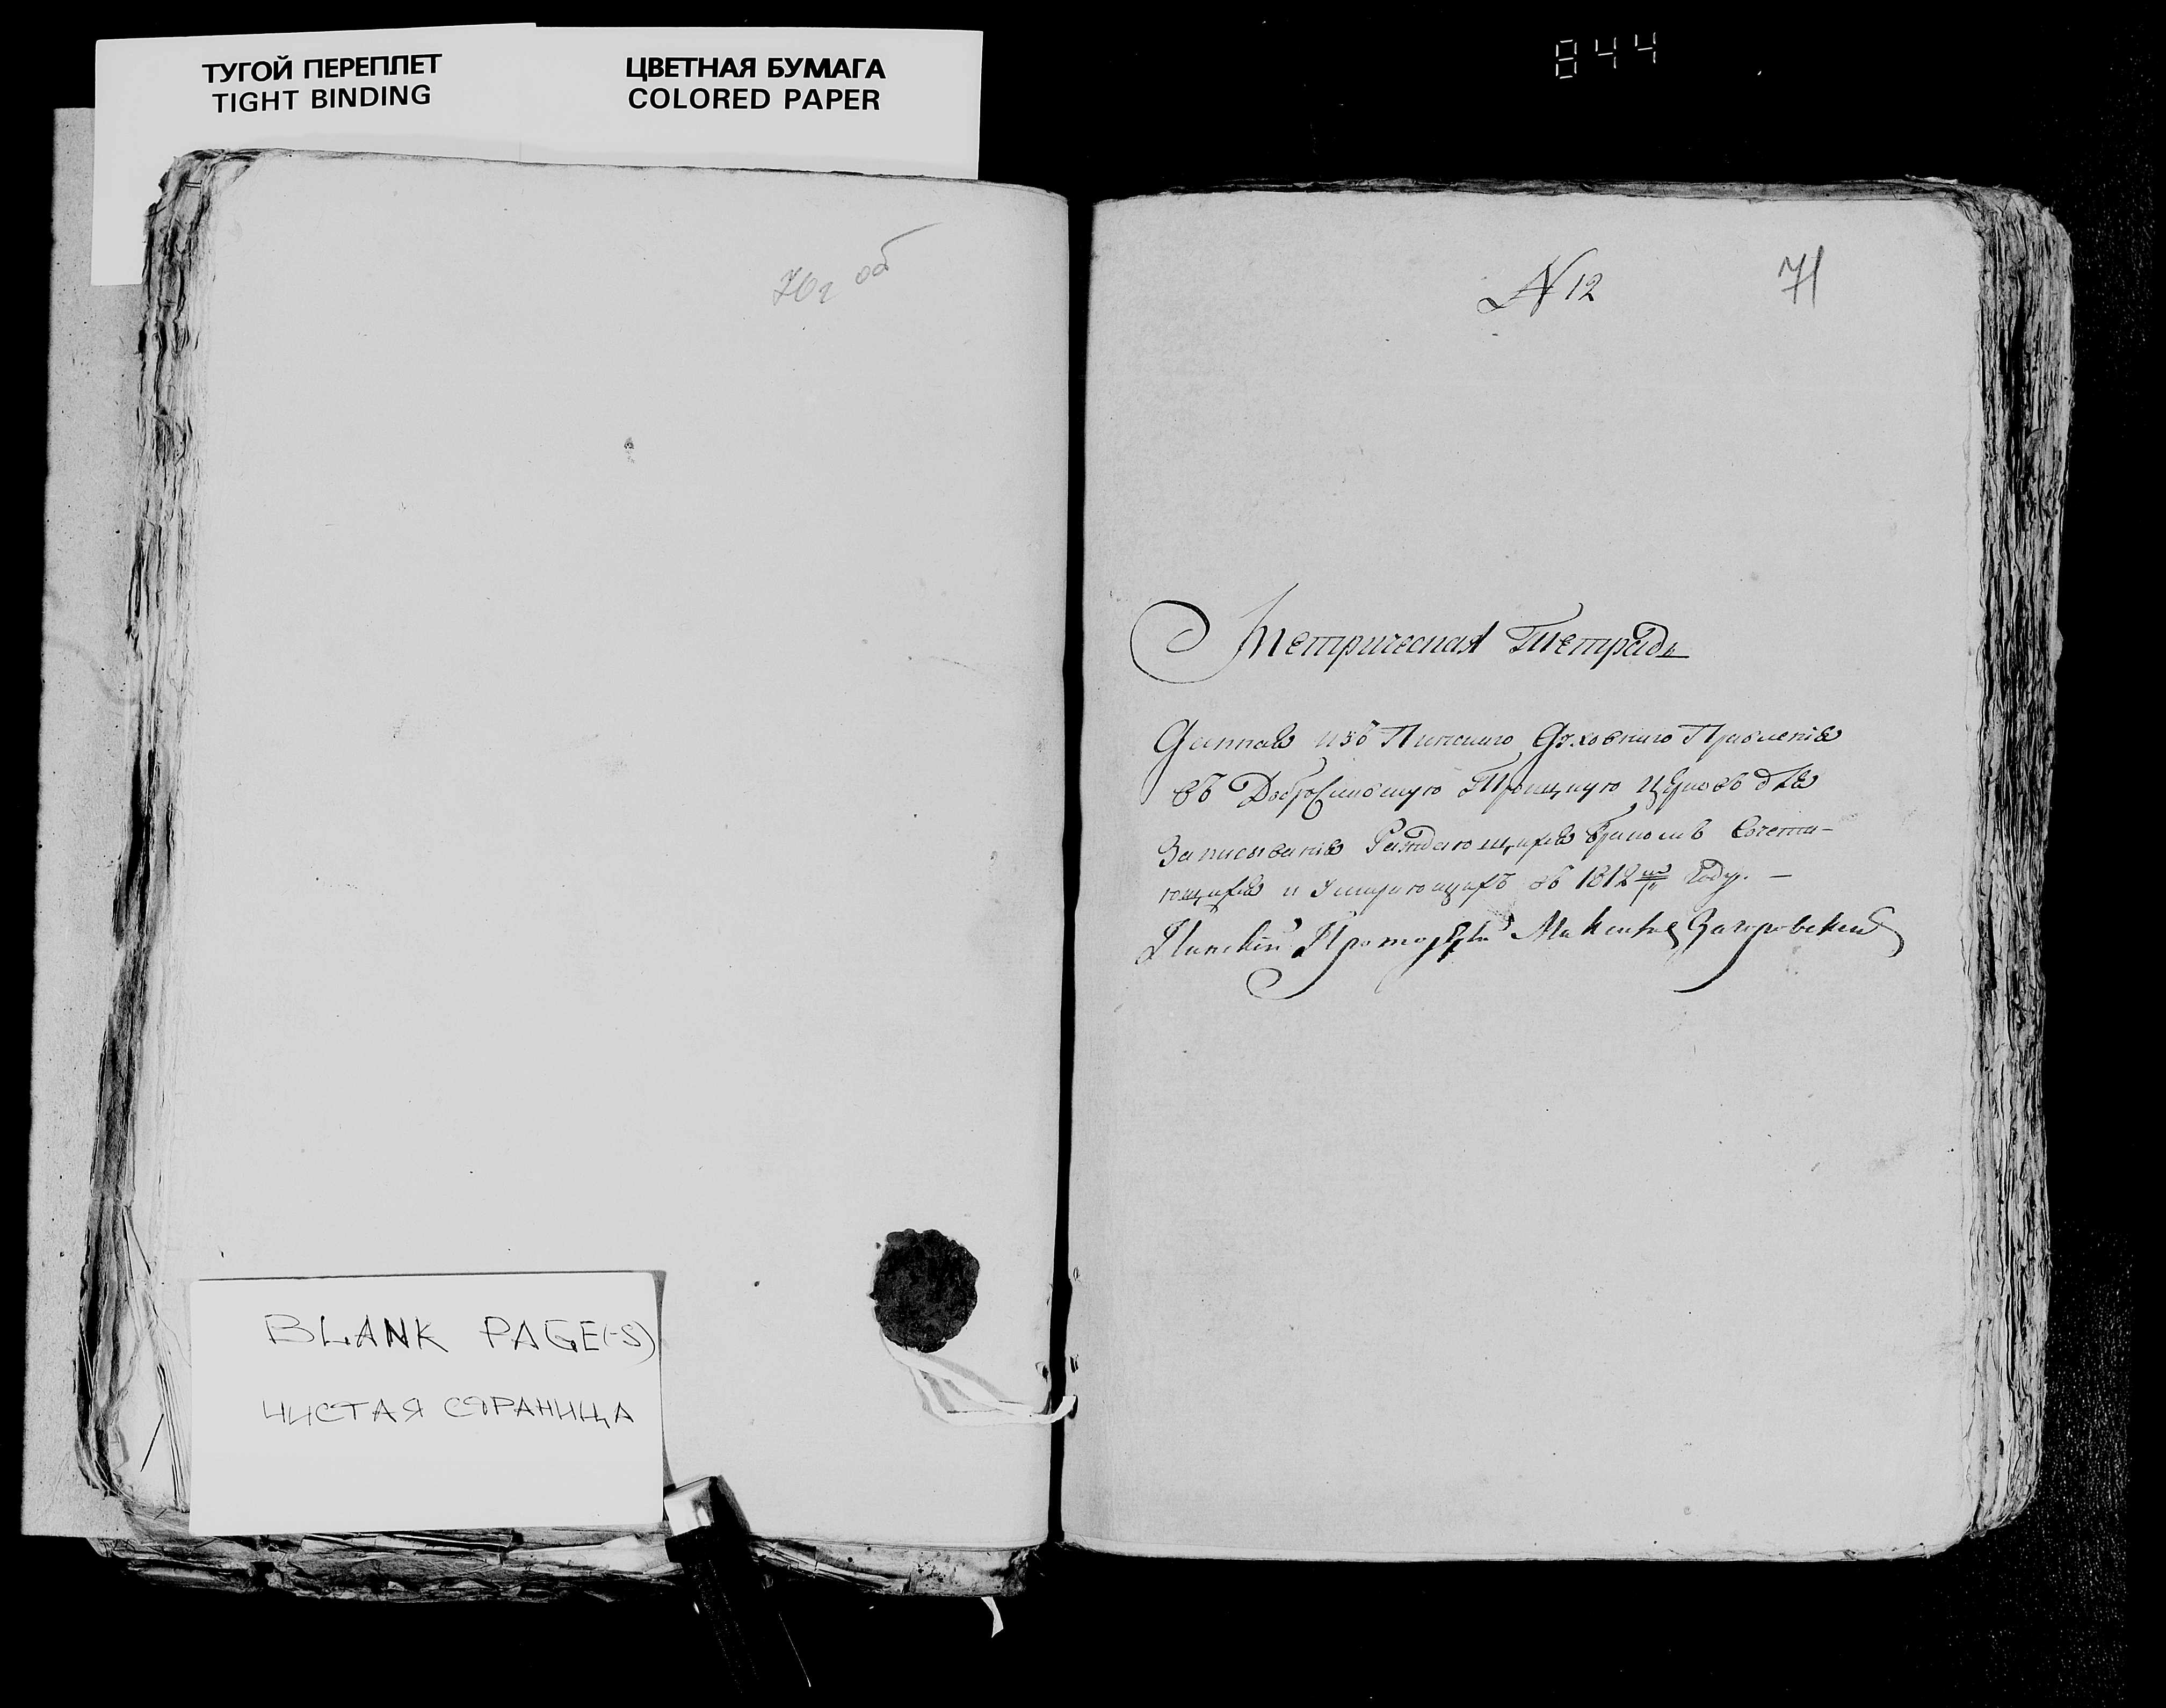 ТУГОЙ ПЕРЕПЛЕТ
TIGHT BINDING
ЦВЕТНАЯ БУМАГА
COLORED PAPER
844
об
N 12
71
Метрическая Тетрадь
Данная изъ Пинскаго Духовнаго Правленія
въ Доброславскую Троицкую Церковь для
Записыванія Раждающихся Бракомъ Сочета-
ющихся и Умирающихъ въ 1812мъ Году. —
Пинскій Протоіерей Загоровскій
BLANK PAGE(-S)
ЧИСТАЯ СТРАНИЦА